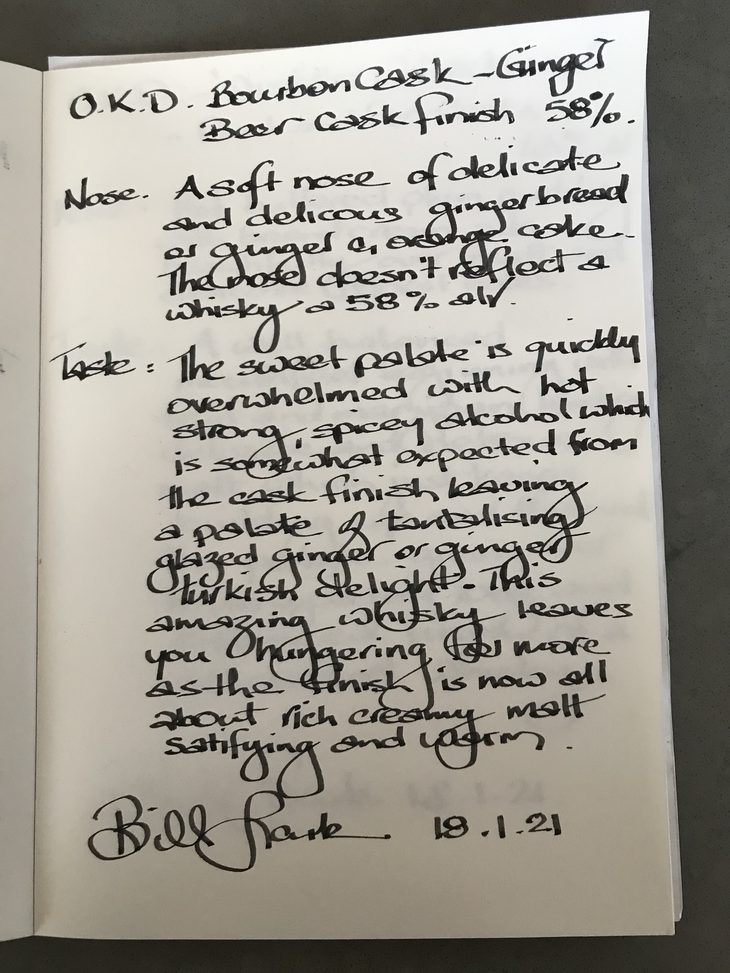 O.K.D. Bourbon Cask - Ginger
Beer Cask finish 58%.
Nose. A soft nose of delicate
and delicous gingerbread
or ginger & orange cake.
The nose doesn't reflect a
whisky @ 58% alv.
Taste: The sweet palate is quickly
overwhelmed with hot
strong, spicey alcohol which
is somewhat expected from
the cask finish leaving
a palate of tantalising
glazed ginger or ginger
turkish delight. This
amazing whisky leaves
you hungering for more
as the finish is now all
about rich creamy malt
satifying and warm.
Bill 18.1.21